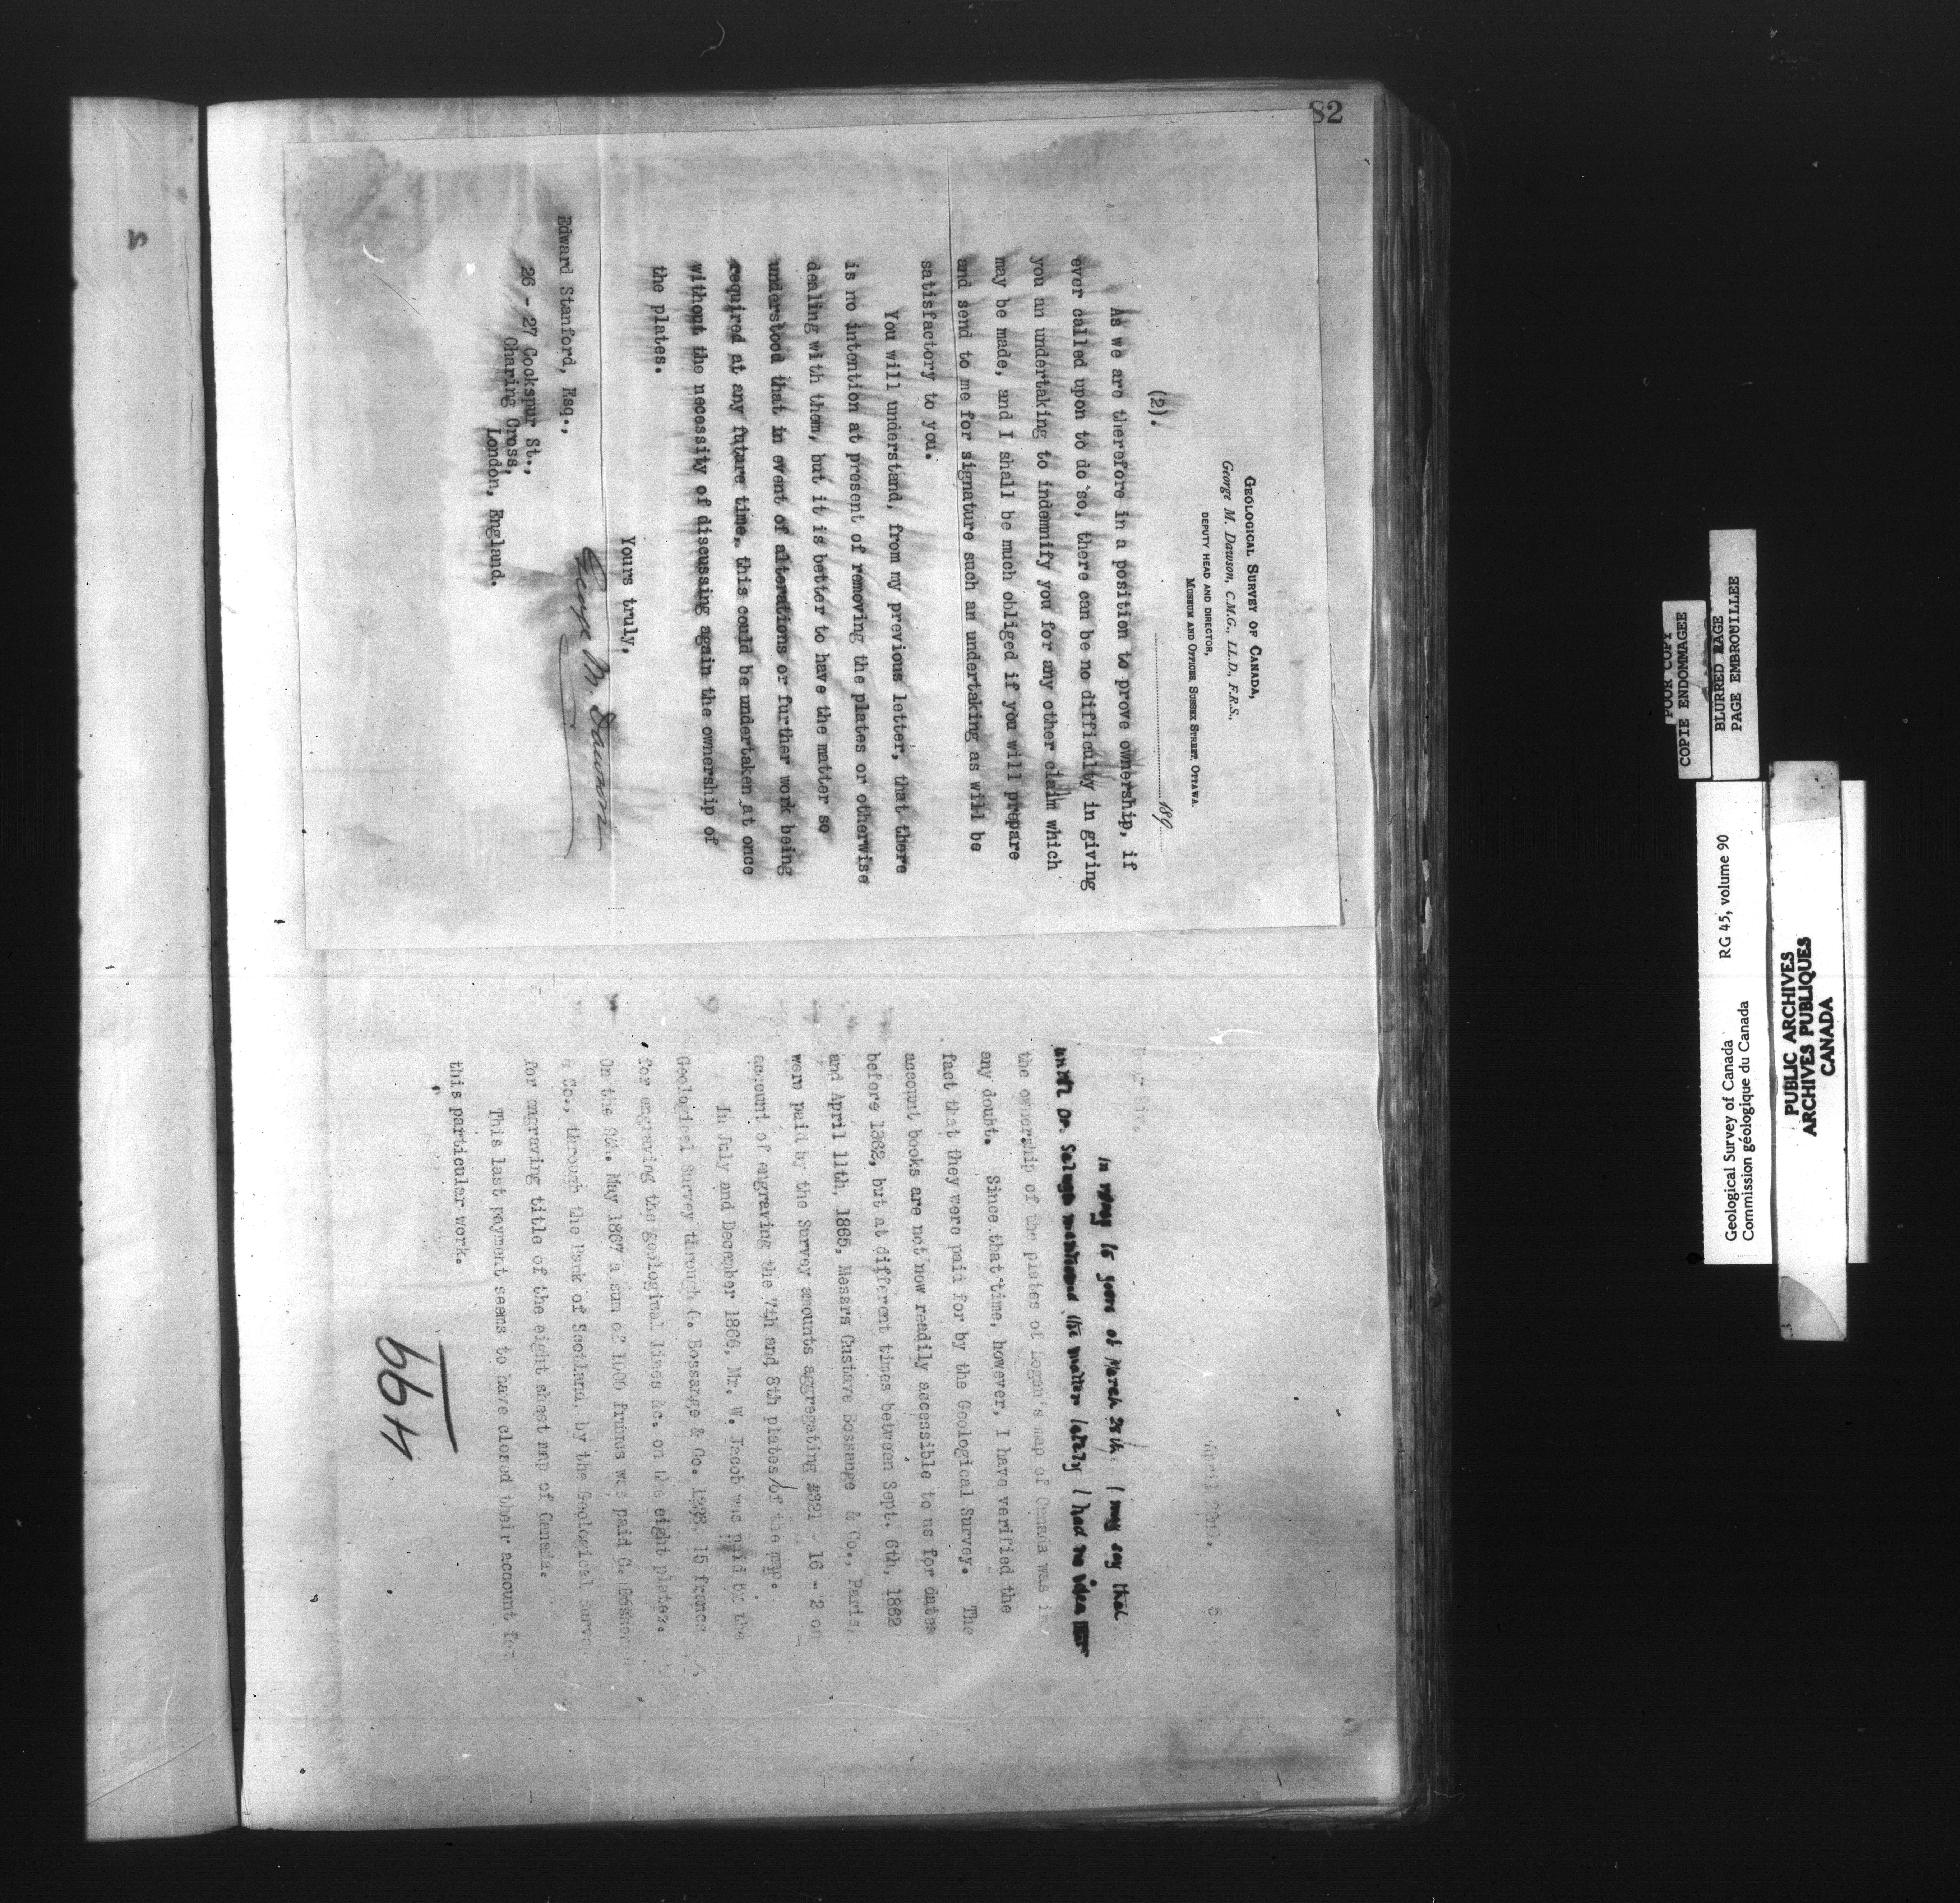 82
GEOLOGICAL SURVEY OF CANADA,
George M. Dawson, C.M.G., LL.D., F.R.S.,
DEPUTY HEAD AND DIRECTOR,
MUSEUM AND OFFICES, SUSSEX STREET, OTTAWA.
189
(2).
As we are therefore in a position to prove ownership, if
ever called upon to do so, there can be no difficulty in giving
you an undertaking to indemnify you for any other claim which
may be made, and I shall be much obliged if you will prepare
and send to me for signature such an undertaking as will be
satisfactory to you.
You will understand, from my previous letter, that there
is no intention at present of removing the plates or otherwise
dealing with them, but it is better to have the matter so
understood that in event of alterations or further work being
required at any future time, this could be undertaken at once
without the necessity of discussing again the ownership of
the plates.
Yours truly,
George M. Dawson
Edward Stanford, Esq.,
26 - 27 Cockspur St.,
Charing Cross,
London, England.
April
Dear Sir,
In reply to yours of March 28th, I may say that
until Dr. Selwyn mentioned the matter lately I had no idea
the ownership of the plates of Logan's map of Canada was in
any doubt. Since that time, however, I have verified the
fact that they were paid for by the Geological Survey. The
account books are not now readily accessible to us for dates
before 1862, but at different times between Sept. 6th, 1862
and April 11th, 1865, Messrs Gustave Bossange & Co., Paris,
were paid by the Survey amounts aggregating £321 - 16 - 2 on
account of engraving the 7th and 8th plates/of the map.
In July and December 1866, Mr. W. Jacob was paid by the
Geological Survey through G. Bossange & Co. 1298. 15 francs
for engraving the geological lines &c. on the eight plates.
On the 9th. May 1867 a sum of 1000 francs was paid G. Bossan
& Co., through the Bank of Scotland, by the Geological Surve
for engraving title of the eight sheet map of Canada.
This last payment seems to have closed their account for
this particular work.
499
POOR COPY
COPIE ENDOMMAGEE
BLURRED PAGE
PAGE EMBROUILLEE
Geological Survey of Canada RG 45, volume 90
Commission géologique du Canada
PUBLIC ARCHIVES
ARCHIVES PUBLIQUES
CANADA